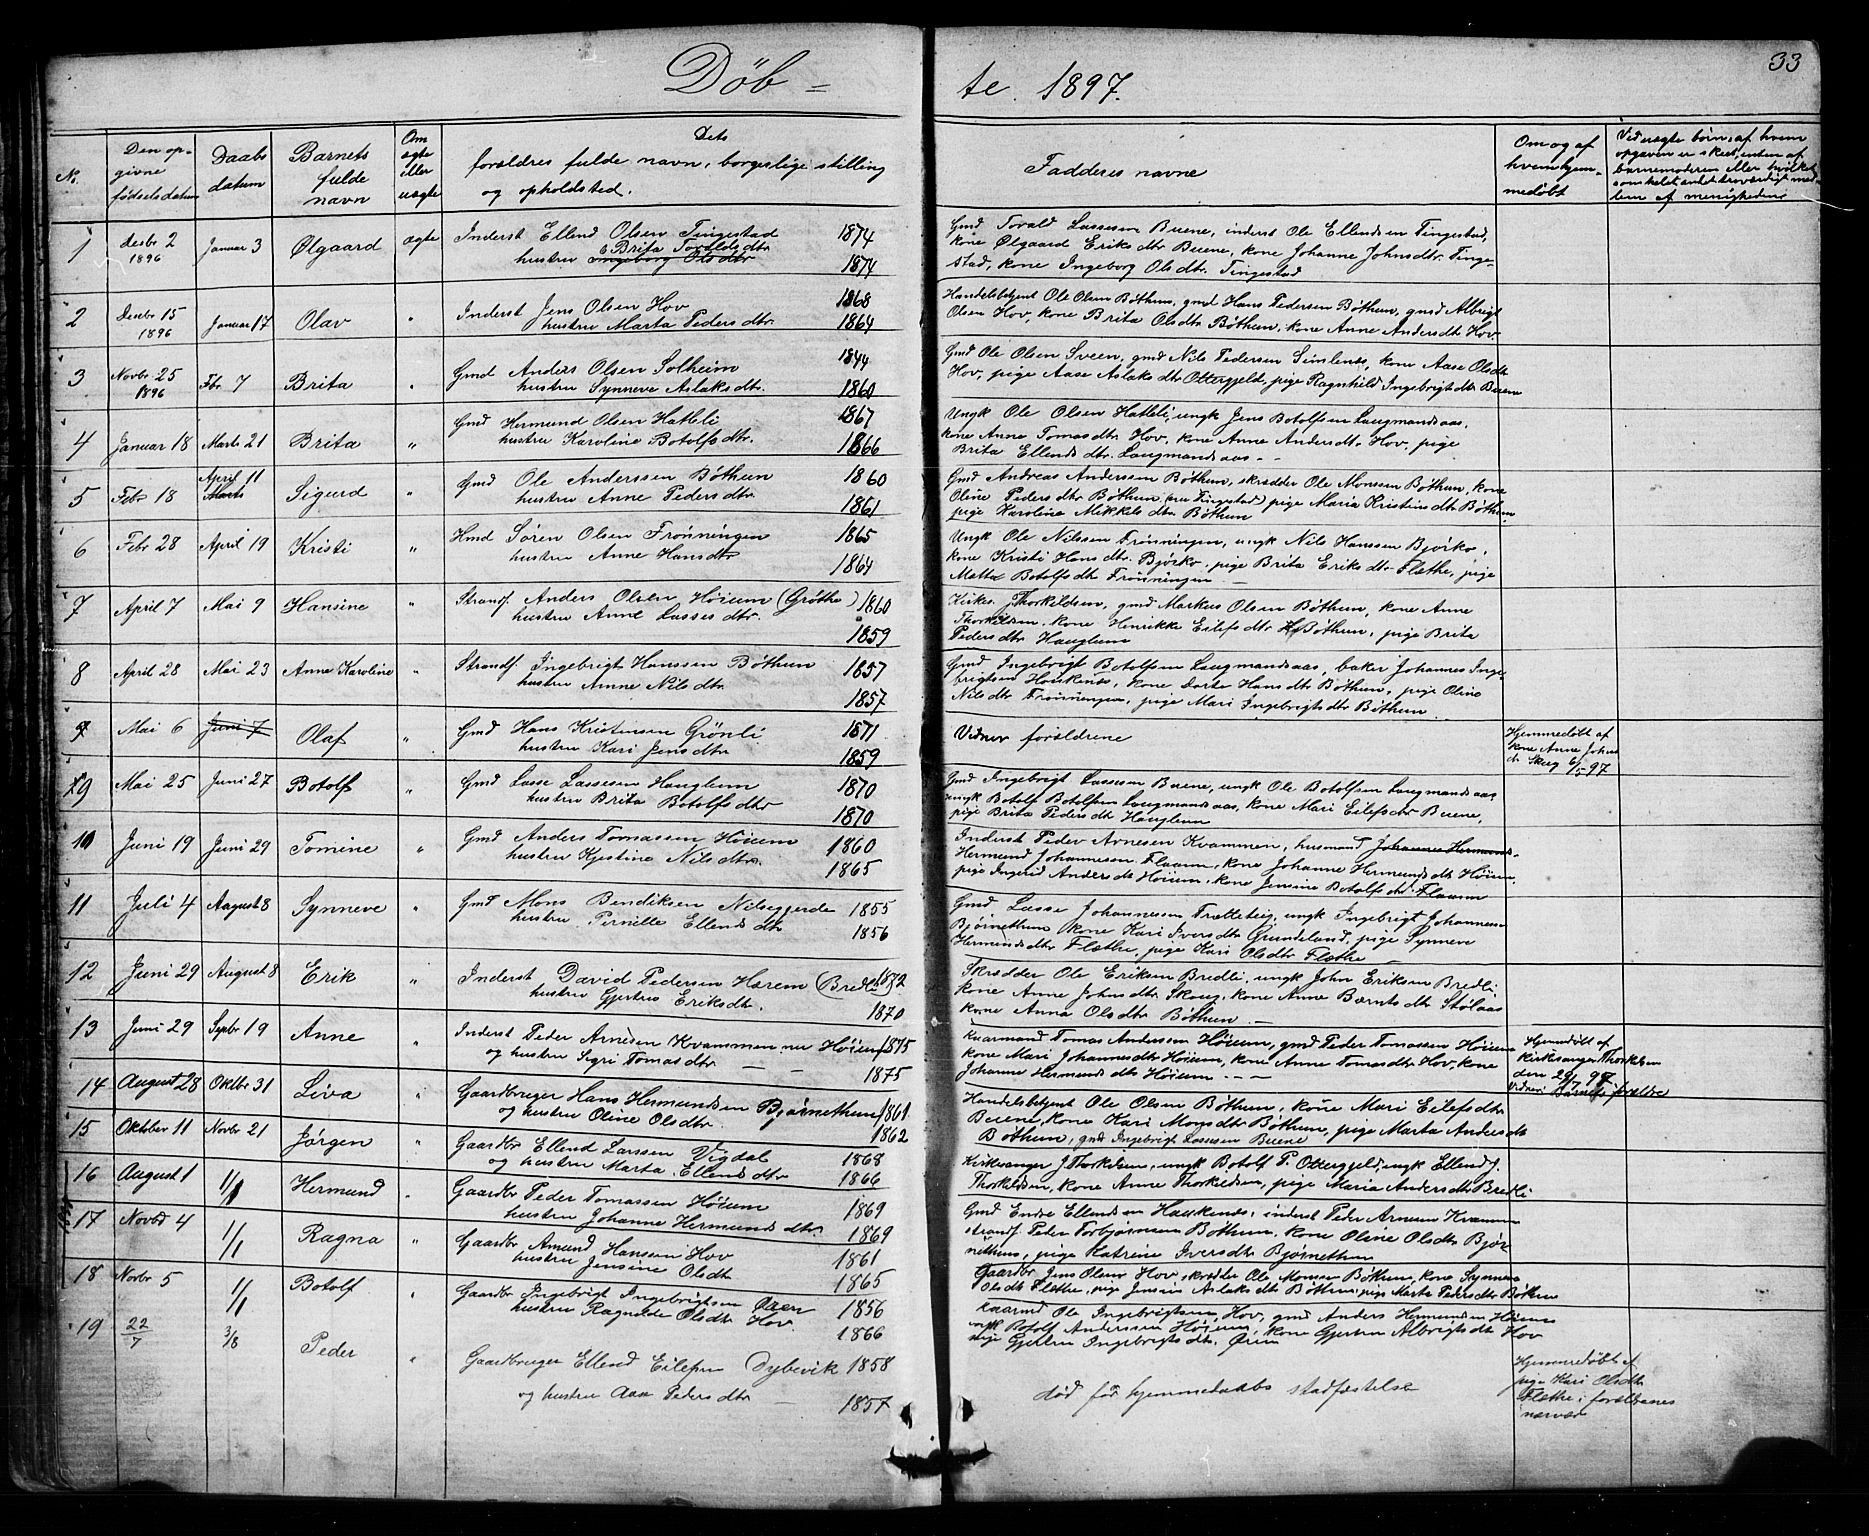 33
Døb = te. 1897.
No.
Den op-
givne
fødselsdatum
Daabs
datum
Barnets
fulde
navn
Om
ægte
eller
uægte
Dets
forældres fulde navn, borgerlige stilling
og opholdsted.
Faddernes navne
Om og af
hvem hjem-
medøbt
Ved uægte børn, af hvem
opgaven er skeet, enten af
barnemoderen eller hvilket
somhelst andet troværdigt med-
lem af menigheden
1 Desbr 2 1896 Januar 3 Ølgaard ægte Inderst Ellend Olsen Tingestad 1874
Brita Toraldsdtr
hustru Ingeborg Olsdtr 1874
Gmd Torald Lassesen Buene, inderst Ole Ellendsen Tingestad,
kone Ølgaard Eriksdtr Buene, kone Johanne Johnsdtr. Tinge-
stad, kone Ingeborg Olsdtr. Tingestad
2 Desbr 15 1896 Januar 17 Olav " Inderst Jens Olsen Hov 1868
hustru Marta Pedersdtr 1864
Handelsbetjent Ole Olsen Bøthun, gmd Hans Pedersen Bøthun, gmd Albrigt
Olsen Hov, kone Brita Olsdtr Bøthun, kone Anne Andersdtr Hov.
3 Novbr 25 1896 Fbr 7 Brita " Gmd Anders Olsen Solheim 1844
hustru Synneve Aslaksdtr. 1860
Gmd Ole Olsen Sveen, gmd Nils Pedersen Simlenes, kone Aase Olsdtr
Hov, pige Aase Aslaksdtr Ottergjeld, pige Ragnhild Ingebrigtsdtr Buene
4 Januar 18 Marts 21 Brita " Gmd Hermund Olsen Hatleli 1867
hustru Karoline Botolfsdtr. 1866
Ungk Ole Olsen Hatleli, ungk Jens Botolfsen Laugmandsaas,
kone Anne Tomasdtr Hov, kone Anne Andersdtr Hov, pige
Brita Ellendsdtr. Laugmandsaas - -
5 Febr 18 April 11 Marts Sigurd " Gmd Ole Anderssen Bøthun 1860
hustru Anne Pedersdtr 1861
Gmd Andreas Anderssen Bøthun, skrædder Ole Monssen Bøthun, kone
Oline Pedersdtr Bøthun (nu Tingestad) pige Maria Kristensdtr Bøthun,
pige Karoline Mikkelsdtr Bøthun
6 Febr 28 April 19 Kristi " Hmd Søren Olsen Frønningen 1865
hustru Anne Hansdtr 1864
Ungk Ole Nilssen Frønningen, ungk Nils Hanssen Bjørko,
kone Kristi Hansdtr. Bjørko, pige Brita Eriksdtr Flæthe, pige
Matta Botolfsdtr Frønningen -
7 April 7 Mai 9 Hansine " Strandf. Anders Olsen Høium (Grøthe) 1860
hustru Anne Lassesdtr. 1859
Kirkes. J Thorkildsen, gmd Markus Olsen Bøthun, kone Anne
Thorkildsen, kone Henrikke Eilefsdtr Bøthun, pige Brita
Pedersdtr Hauglum
8 April 28 Mai 23 Anne Karoline " Strandf. Ingebrigt Hanssen Bøthun 1857
hustru Anne Nilsdtr 1857
Gmd Ingebrigt Botolfsen Laugmandsaas, baker Johannes Inge-
brigtsen Haukenes, kone Dorte Hansdtr Bøthun, pige Oline
Nilsdtr Frønningen, pige Mari Ingebrigtsdtr Bøthun
9 Mai 6 Juni 7 Olaf " Gmd Hans Kristensen Grønli 1871
hustru Kari Jensdtr 1859
Vidner forældrene
Hjemmedøbt af
kone Anne Johns
dtr Skug 6/5 97
9 Mai 25 Juni 27 Botolf " Gmd Lasse Lassesen Hauglum 1870
hustru Brita Botolfsdtr 1870
Gmd Ingebrigt Lassesen Buene, ungk Ole Botolfsen Laugmandsaas,
ungk Botolf Botolfsen Laugmandsaas, kone Mari Eilefsdtr Buene,
pige Brita Pedersdtr Hauglum
10 Juni 19 Juni 29 Tomine " Gmd Anders Tomassen Høium 1860
hustru Kjestine Nilsdtr. 1865
Inderst Peder Arnesen Kvammen, husmand Johannes Hermunds-
Hermund Johannesen Flaam, kone Johanne Hermundsdtr Høium,
pige Ingrid Andersdtr Høium, kone Jensine Botolfsdtr Flaam
11 Juli 4 August 8 Synneve " Gmd Mons Bendiksen Nilsegjerde 1855
hustru Pernille Ellendsdtr 1856
Gmd Lasse Johannessen Trætteteig, ungk Ingebrigt Johannessen
Bjørnethun kone Kari Iversdtr Grundeland, pige Synneve
Hermundsdtr Flæthe, pige Kari Olsdtr Flæthe -
12 Juni 29 August 8 Erik " Inderst David Pedersen Hærem (Bredli) 1872
hustru Gjertrud Eriksdtr. 1870
Skrædder Ole Eriksen Bredli, ungk John Eriksen Bredli
kone Anne Johnsdtr. Skoug, kone Anne Berntsdtr Stølaas
kone Anna Olsdtr Bøthun -
13 Juni 29 Septbr 19 Anne " Inderst Peder Arnesen Kvammen nu Høium 1875
og hustru Sigri Tomasdtr - - 1875
Kaarmand Tomas Anderssen Høium, gmd Peder Tomassen Høium
kone Mari Johannesdtr Høium, kone Anne Tomasdtr Hov, kone
Johanne Hermundsdtr Høium - - -
Hjemmedøbt af
kirkesanger Thorkildsen
den 29/7 97
Vidner: Barnets forældre
14 August 28 Oktbr 31 Liva " Gaardbruger Hans Hermundsen Bjørnethun 1861
og hustru Oline Olsdtr 1862
Handelsbetjent Ole Olsen Bøthun, kone Mari Eilefsdtr
Buene, kone Kari Monsdtr Bøthun, pige Marta Andersdtr
Bøthum, gmd Ingebrigt Lassesen Buene
15 Oktober 11 Novbr 21 Jørgen " Gaardbr Ellend Larssen Vigdal 1868
og hustru Marta Ellendsdtr 1866
Kirkesanger J. Thorkildsen, ungk Botolf P. Ottergjeld, ungk Ellend J.
Thorkildsen, kone Anne Thorkildsen, pige Maria Andersdtr Bredli
16 August 1 1/1 Hermund " Gaardbr Peder Tomassen Høium 1869
hustru Johanne Hermundsdtr. 1869
Gmd Endre Ellendsen Haukenes, inderst Peder Arnesen Kvammen
strandf. Peder Torbjørnsen Bøthun, kone Oline Olsdtr Bjør-
nethun, pige Katrine Iversdtr Bjørnethun
17 Novbr 4 1/1 Ragna " Gaardbr Amund Hanssen Hov 1861
hustru Jensine Olsdtr 1865
Gaardbr Jens Olsen Hov, skrædder Ole Monsen Bøthun, kone Synneva
Olsdtr Flæthe, pige Jensine Aslaksdtr Bøthun, pige Marta Pedersdtr Bøthun
18 Novbr 5 1/1 Botolf " Gaardbr Ingebrigt Ingebrigtsen Øren 1856
hustru Ragnilde Olsdtr Hov. 1866
Kaarmd Ole Ingebrigtsen Hov, gmd Anders Hermundsen Høium
ungk Botolf Anderssen Høium, kone Gjertru Albrigtsdtr Hov
pige Gjertru Ingebrigtsdtr. Øren
19 22/7 3/8 Peder " Gaardbruger Ellend Eilefsen Dybevik 1858
og hustru Aase Pedersdtr - 1857
død før hjemmedaabs stadfestelse
Hjemmedøbt af
pige Kari Olsdtr
Flæthe i forældrenes
nærvær